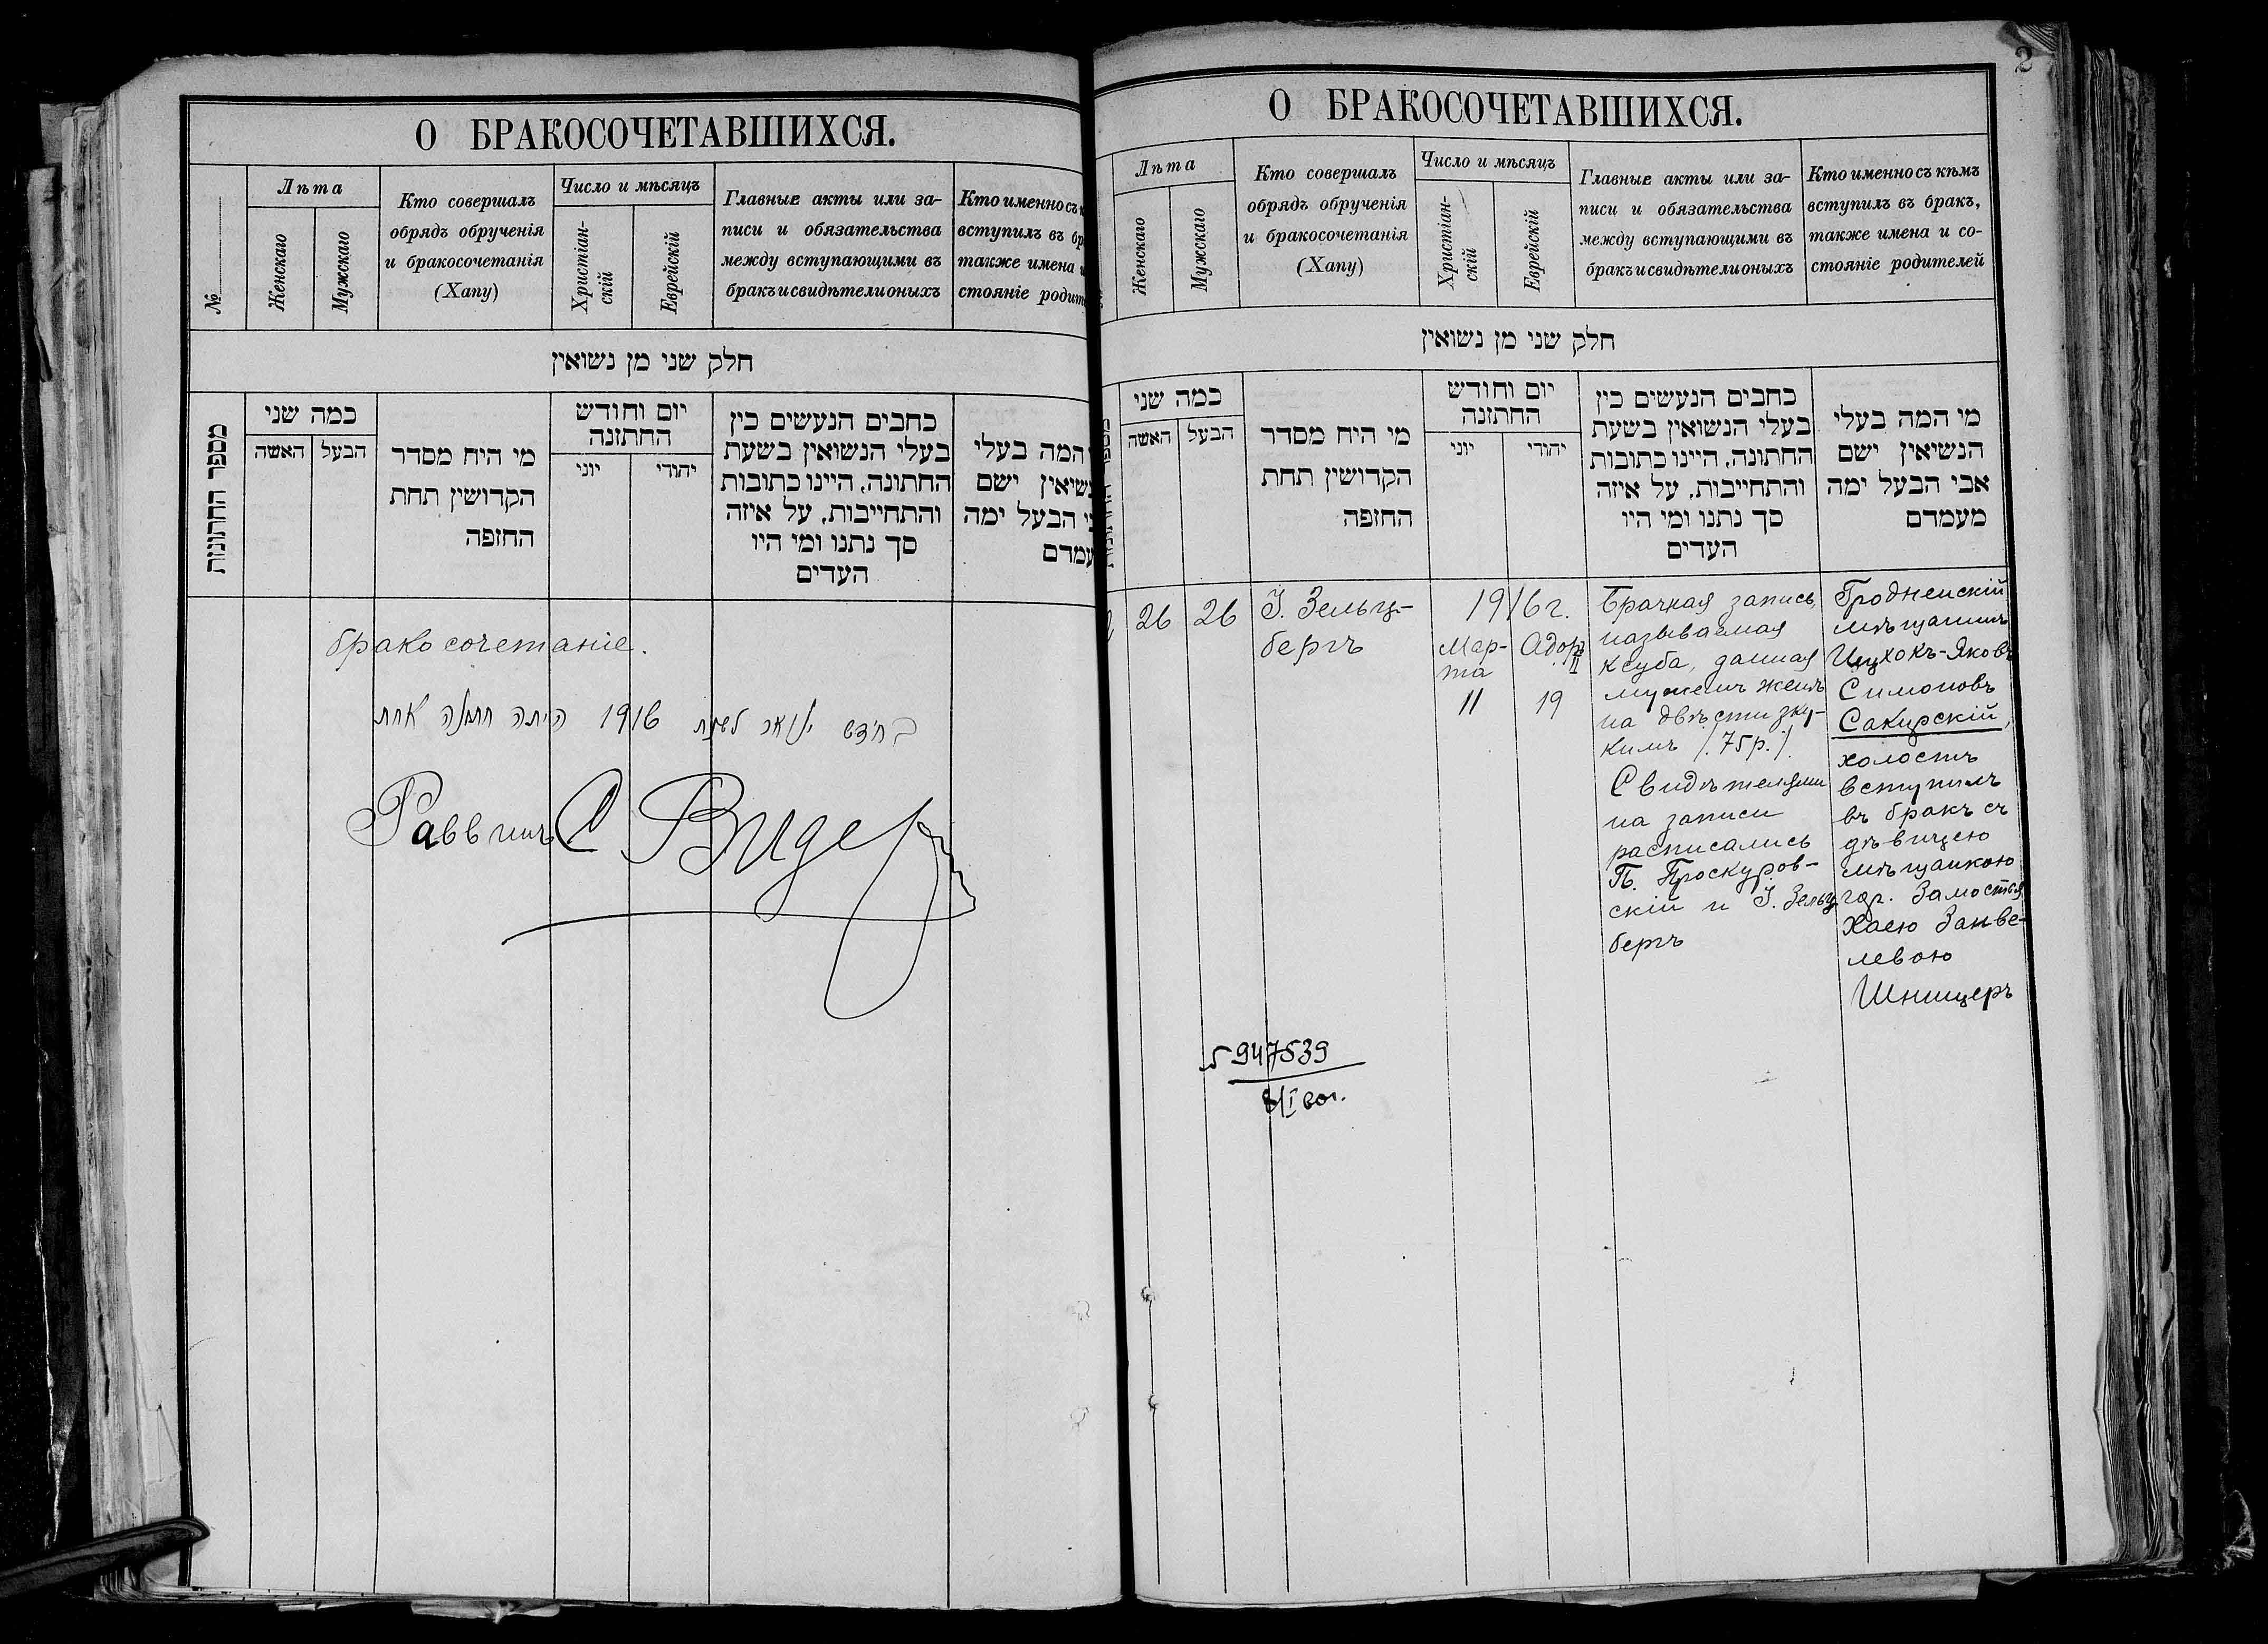 О БРАКОСОЧЕТАВШИХСЯ.
№
Лѣта
Женскаго
Мужскаго
Кто совершалъ
обрядъ обрученія
и бракосочетанія
(Хапу)
Число и мѣсяцъ
Христіан-
скій
Еврейскій
Главные акты или за-
писи и обязательства
между вступающими въ
бракъ и свидѣтели оныхъ
Кто именно съ
вступилъ въ бр
также имена и
стояніе родит
חלק שני מן נשואין
מספר החתונות
כמה שני
האשה
הבעל
מי היח מסדר
הקדושין תחת
החזפה
יום וחודש
החתזנה
יוני
יהודי
כחבים הנעשים כין
בעלי הנשואין בשעת
החתונה, היינו כתובות
והתחייבות, על איזה
סך נתנו ומי היו
העדים
המה בעלי
נשיאין ישם
הבעל ימה
עמדם
бракосочетаніе.
בחדש ינואר לשנת 1916 היתה חתונה אחת
Раввинъ С Видер
2
О БРАКОСОЧЕТАВШИХСЯ.
Лѣта
Женскаго
Мужскаго
Кто совершалъ
обрядъ обрученія
и бракосочетанія
(Хапу)
Число и мѣсяцъ
Христіан-
скій
Еврейскій
Главные акты или за-
писи и обязательства
между вступающими въ
бракъ и свидѣтели оныхъ
Кто именно съ кѣмъ
вступилъ въ бракъ,
также имена и со-
стояніе родителей
חלק שני מן נשואין
כמה שני
האשה
הבעל
מי היח מסדר
הקדושין תחת
החזפה
יום וחודש
החתזנה
יוני
יהודי
כחבים הנעשים כין
בעלי הנשואין בשעת
החתונה, היינו כתובות
והתחייבות, על איזה
סך נתנו ומי היו
העדים
מי המה בעלי
הנשיאין ישם
אבי הבעל ימה
מעמדם
26
26
І. Зельц-
бергъ
1916 г.
Мар-
та
11
Адоръ
II
19
Брачная запись,
называемая
ксуба, данная
мужемъ женѣ
на двѣсти зку-
кимъ /.75 р./.
Свидѣтелями
на записи
расписались
П. Проскуров-
скій и І. Зельц-
бергъ
Гродненскій
мѣщанинъ
Ицхокъ-Яковъ
Симоновъ
Сакирскій,
холостъ
вступилъ
въ бракъ съ
дѣвицею
мѣщанкою
гор. Замостья
Хаею Занве-
левою
Шницеръ
947539